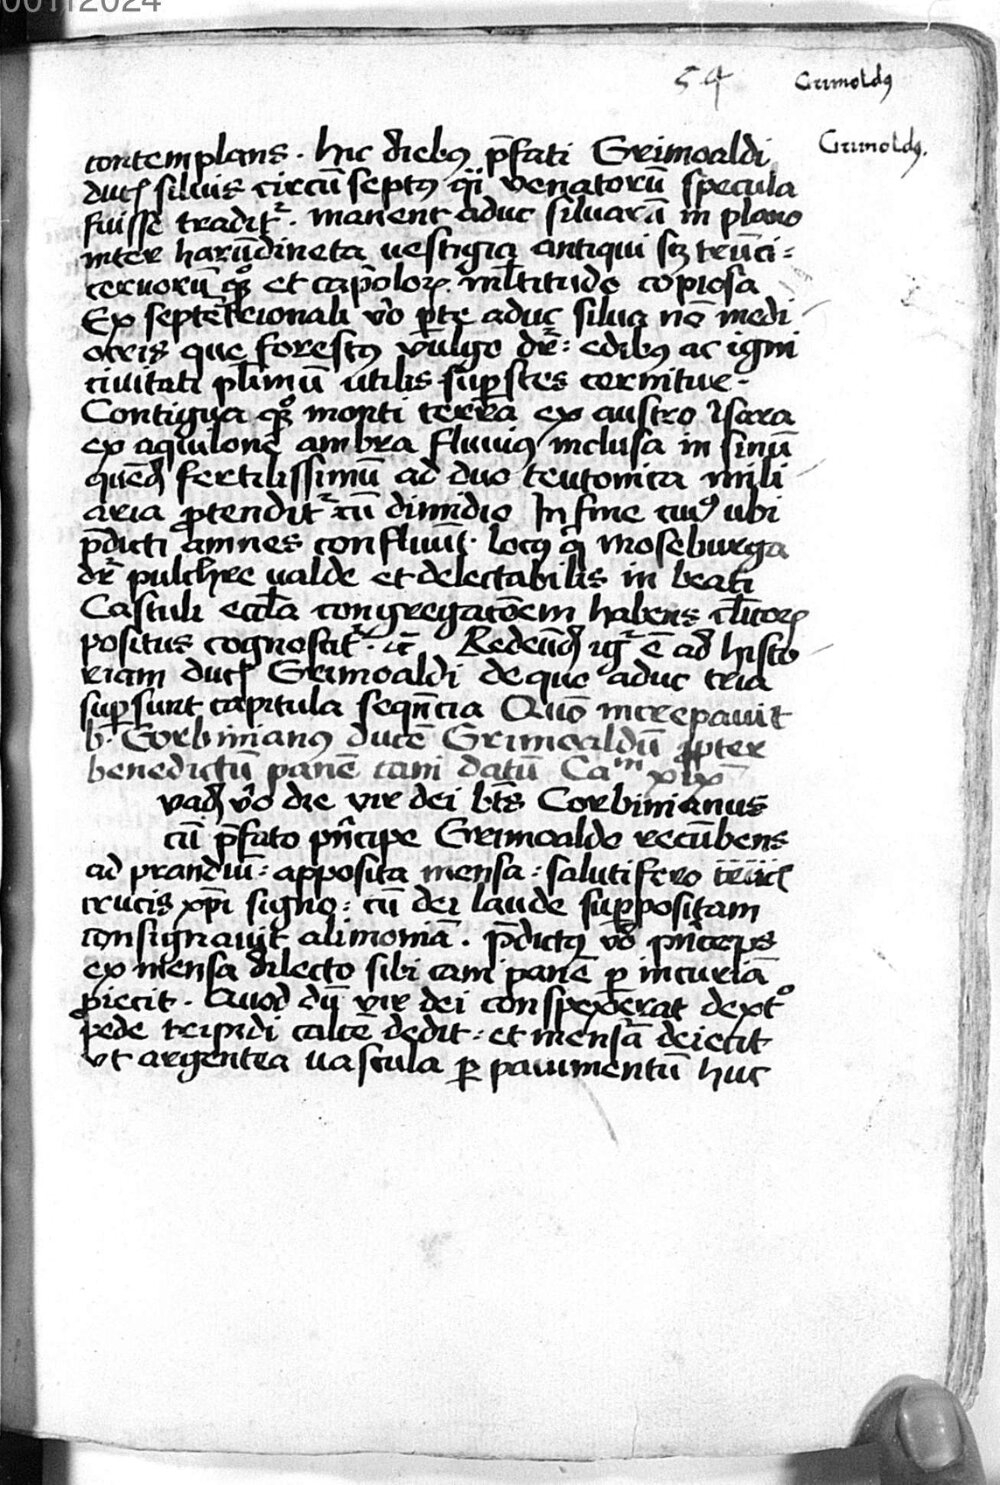 00112024
54 Grimoldꝰ
Grimoldꝰ.
contemplans. hic diebꝰ p̄fati Grimoaldi
ducꝭ siluis circūseptꝰ q̄i venatorū specula
fuisse tradit᷑. manent aduc siluarū in plano
inter harūdineta uestigia antiqui sꝫ trūci:
ceruorū qͦqꝫ et cap̄olorꝝ ml̄titudo copiosa
Ex septētrionali v̄o ꝑte aduc silua nō medi
ocris que forestꝰ vulgo dr̄: edibꝰ ac igni
ciuitati pl̄imū utilis suꝑstes cernitur.
Contigua qͦqꝫ monti terra ex austro ysara
ex aquilone ambra fluuiꝰ inclusa in sinū
quēdꝫ fertilissimū ad duo teutonica mili
aria ꝓtendit᷑ cū dimidio In fine cuiꝰ ubi
p̄dicti amnes confluūt. locꝰ q̄ moseburga
dr̄ pulchre ualde et delectabilis in beati
Castuli eccl̄ia congregacōem habens cl̄icorꝝ
positus cognoscit᷑. rc̄ Redeūdꝫ igᷓ ē ad histo
riam ducꝭ Grimoaldi de quo aduc tria
suꝑsunt capitula seqn̄cia Quō increpauit
b. Corbinianꝰ ducē Grimoaldū ꝓpter
benedictū panē cani datū Caᵐ xix
vadꝫ v̄o die vir dei bt̄s Corbinianus
cū p̄fato pn̄cipe Grimoaldo recūbens
ad prandiū: apposita mensa: salutifero
crucis xp̄i signo: cū dei laude suꝑpositam
consignauit alimoniā. p̄dictꝰ v̄o pn̄ceps
ex mensa dilecto sibi cani panē ꝑ incuriā
ꝓiecit. Quod dū vir dei conspexerat dextͦ
pede tripidi calcē dedit: et mensā deiecit
vt argentea uascula ꝑ pauimentū huc